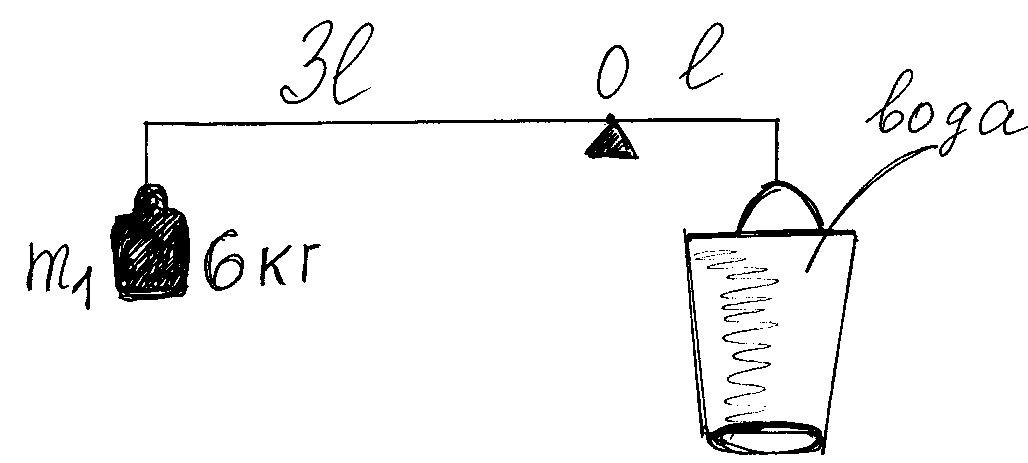 3l O l
вода
m₁ 6 кг